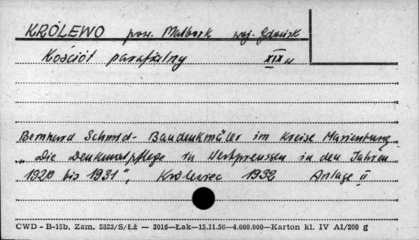 KRÓLEWO pow. Malbork woj. Gdańsk
Kościół parafialny XIX w
Bernhard Schmid - Baudenkmäler im Kreise Marienburg
„Die Denkmalpflege in Westpreussen in den Jahren
1920 bis 1931", Królewiec 1932 Anlage II
CWD - B-15b. Zam. 5323/S/Łż — 3016—Łak—15.11.56—4.000.000—Karton kl. IV A1/200 g